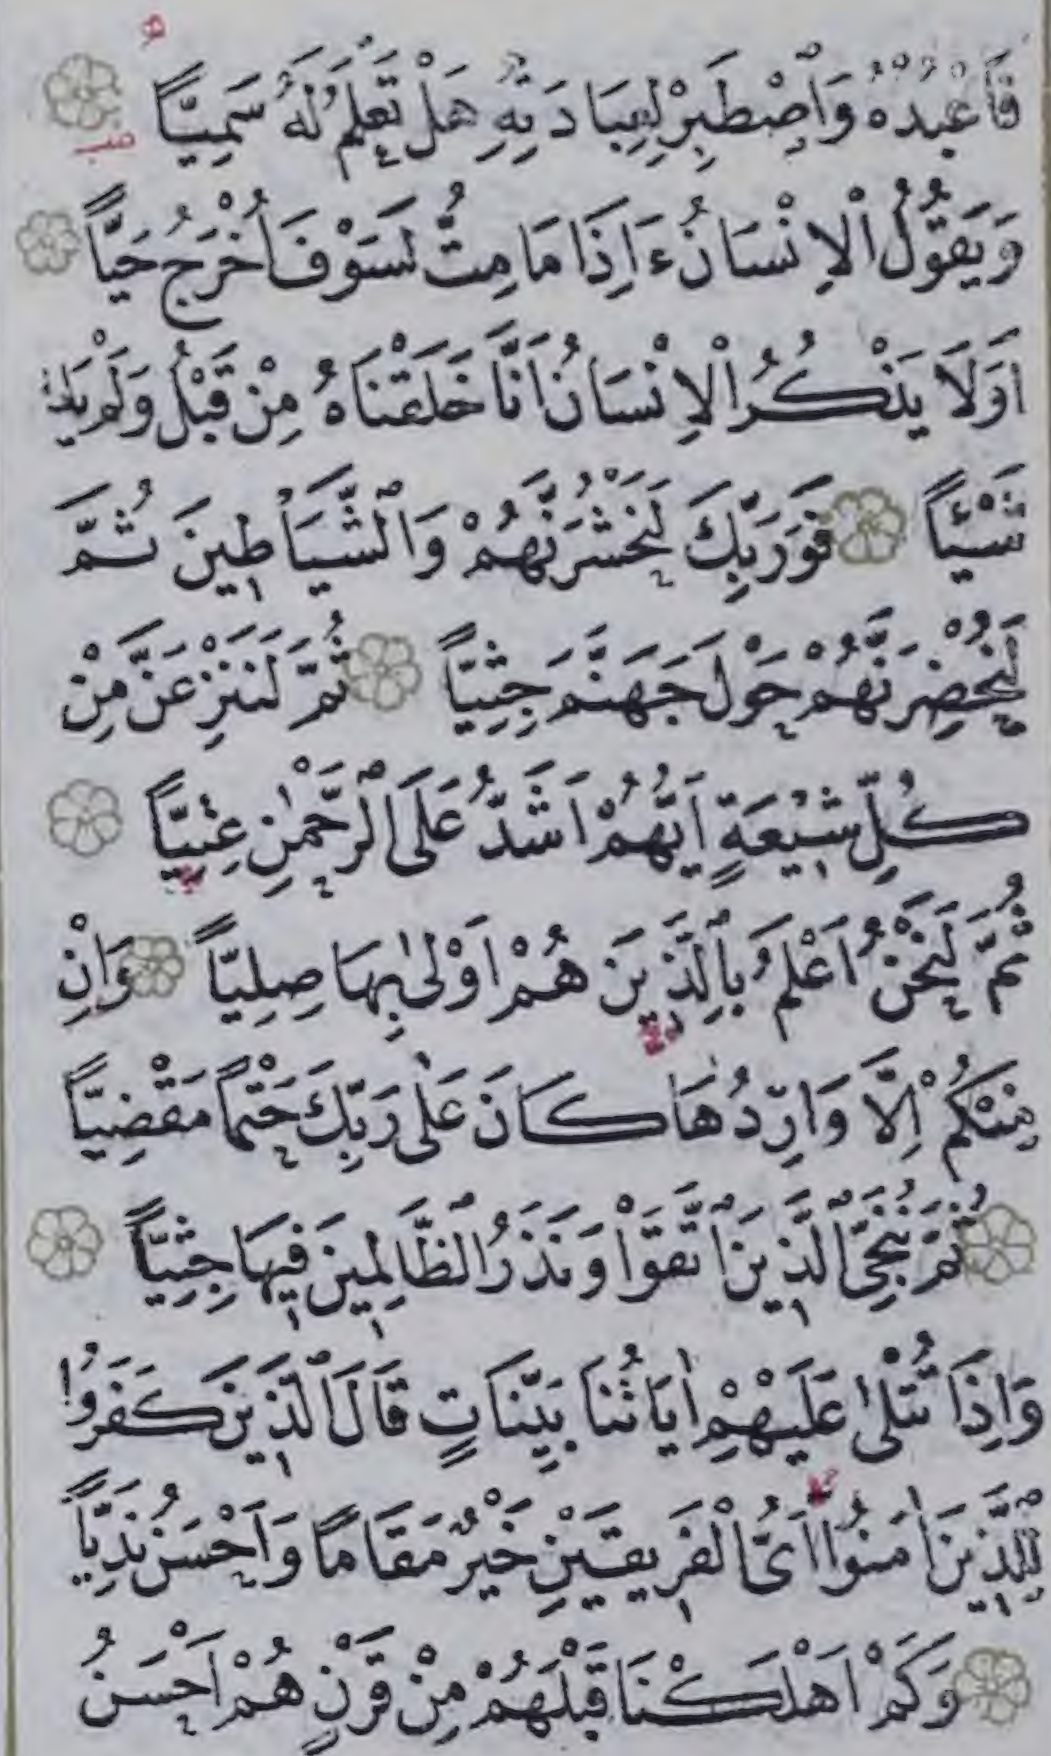 فَاعْبُدْهُ وَاصْطَبِرْ لِعِبَادَتِهِ هَلْ تَعْلَمُ لَهُ سَمِيًّا
وَيَقُولُ الْاِنْسَانُ ءَاِذَا مَا مِتُّ لَسَوْفَ اُخْرَجُ حَيًّا
اَوَلَا يَذْكُرُ الْاِنْسَانُ اَنَّا خَلَقْنَاهُ مِنْ قَبْلُ وَلَمْ يَكُ
شَيْـًٔا فَوَرَبِّكَ لَنَحْشُرَنَّهُمْ وَالشَّيَاطِينَ ثُمَّ
لَنُحْضِرَنَّهُمْ حَوْلَ جَهَنَّمَ جِثِيًّا ثُمَّ لَنَنْزِعَنَّ مِنْ
كُلِّ شِيعَةٍ اَيُّهُمْ اَشَدُّ عَلَى الرَّحْمٰنِ عِتِيًّا
ثُمَّ لَنَحْنُ اَعْلَمُ بِالَّذِينَ هُمْ اَوْلٰى بِهَا صِلِيًّا وَاِنْ
مِنْكُمْ اِلَّا وَارِدُهَا كَانَ عَلٰى رَبِّكَ حَتْمًا مَقْضِيًّا
ثُمَّ نُنَجِّي الَّذِينَ اتَّقَوْا وَنَذَرُ الظَّالِمِينَ فِيهَا جِثِيًّا
وَاِذَا تُتْلٰى عَلَيْهِمْ اٰيَاتُنَا بَيِّنَاتٍ قَالَ الَّذِينَ كَفَرُوا
لِلَّذِينَ اٰمَنُوا اَيُّ الْفَرِيقَيْنِ خَيْرٌ مَقَامًا وَاَحْسَنُ نَدِيًّا
وَكَمْ اَهْلَكْنَا قَبْلَهُمْ مِنْ قَرْنٍ هُمْ اَحْسَنُ